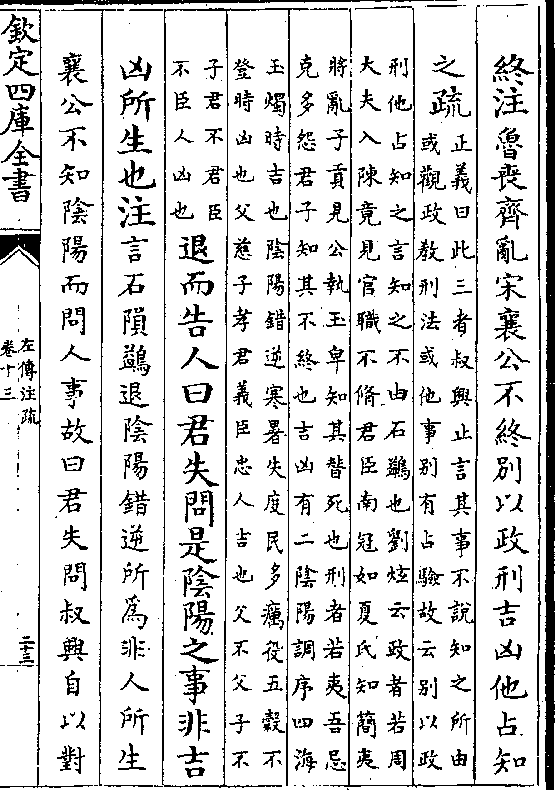 終注魯喪齊亂宋襄公不終別以政刑吉凶他占知
之疏
正義曰此三者叔興止言其事不說知之所由
或觀政教刑法或他事別有占驗故云別以政
刑他占知之言知之不由石鷁也劉炫云政者若周
大夫入陳竟見官職不脩君臣南冠如夏氏知簡夷
將亂子貢見公執玉卑知其替死也刑者若夷吾忌
克多怨君子知其不終也吉凶有二陰陽調序四海
玉燭時吉也陰陽錯逆寒暑失度民多癘役五穀不
登時凶也父慈子孝君義臣忠人吉也父不父子不
子君不君臣
不臣人凶也
退而告人曰君失問是陰陽之事非吉
凶所生也注言石隕鷁退陰陽錯逆所爲非人所生
襄公不知陰陽而問人事故曰君失問叔興自以對
欽定四庫全書
左傳注疏
卷十三
二十三